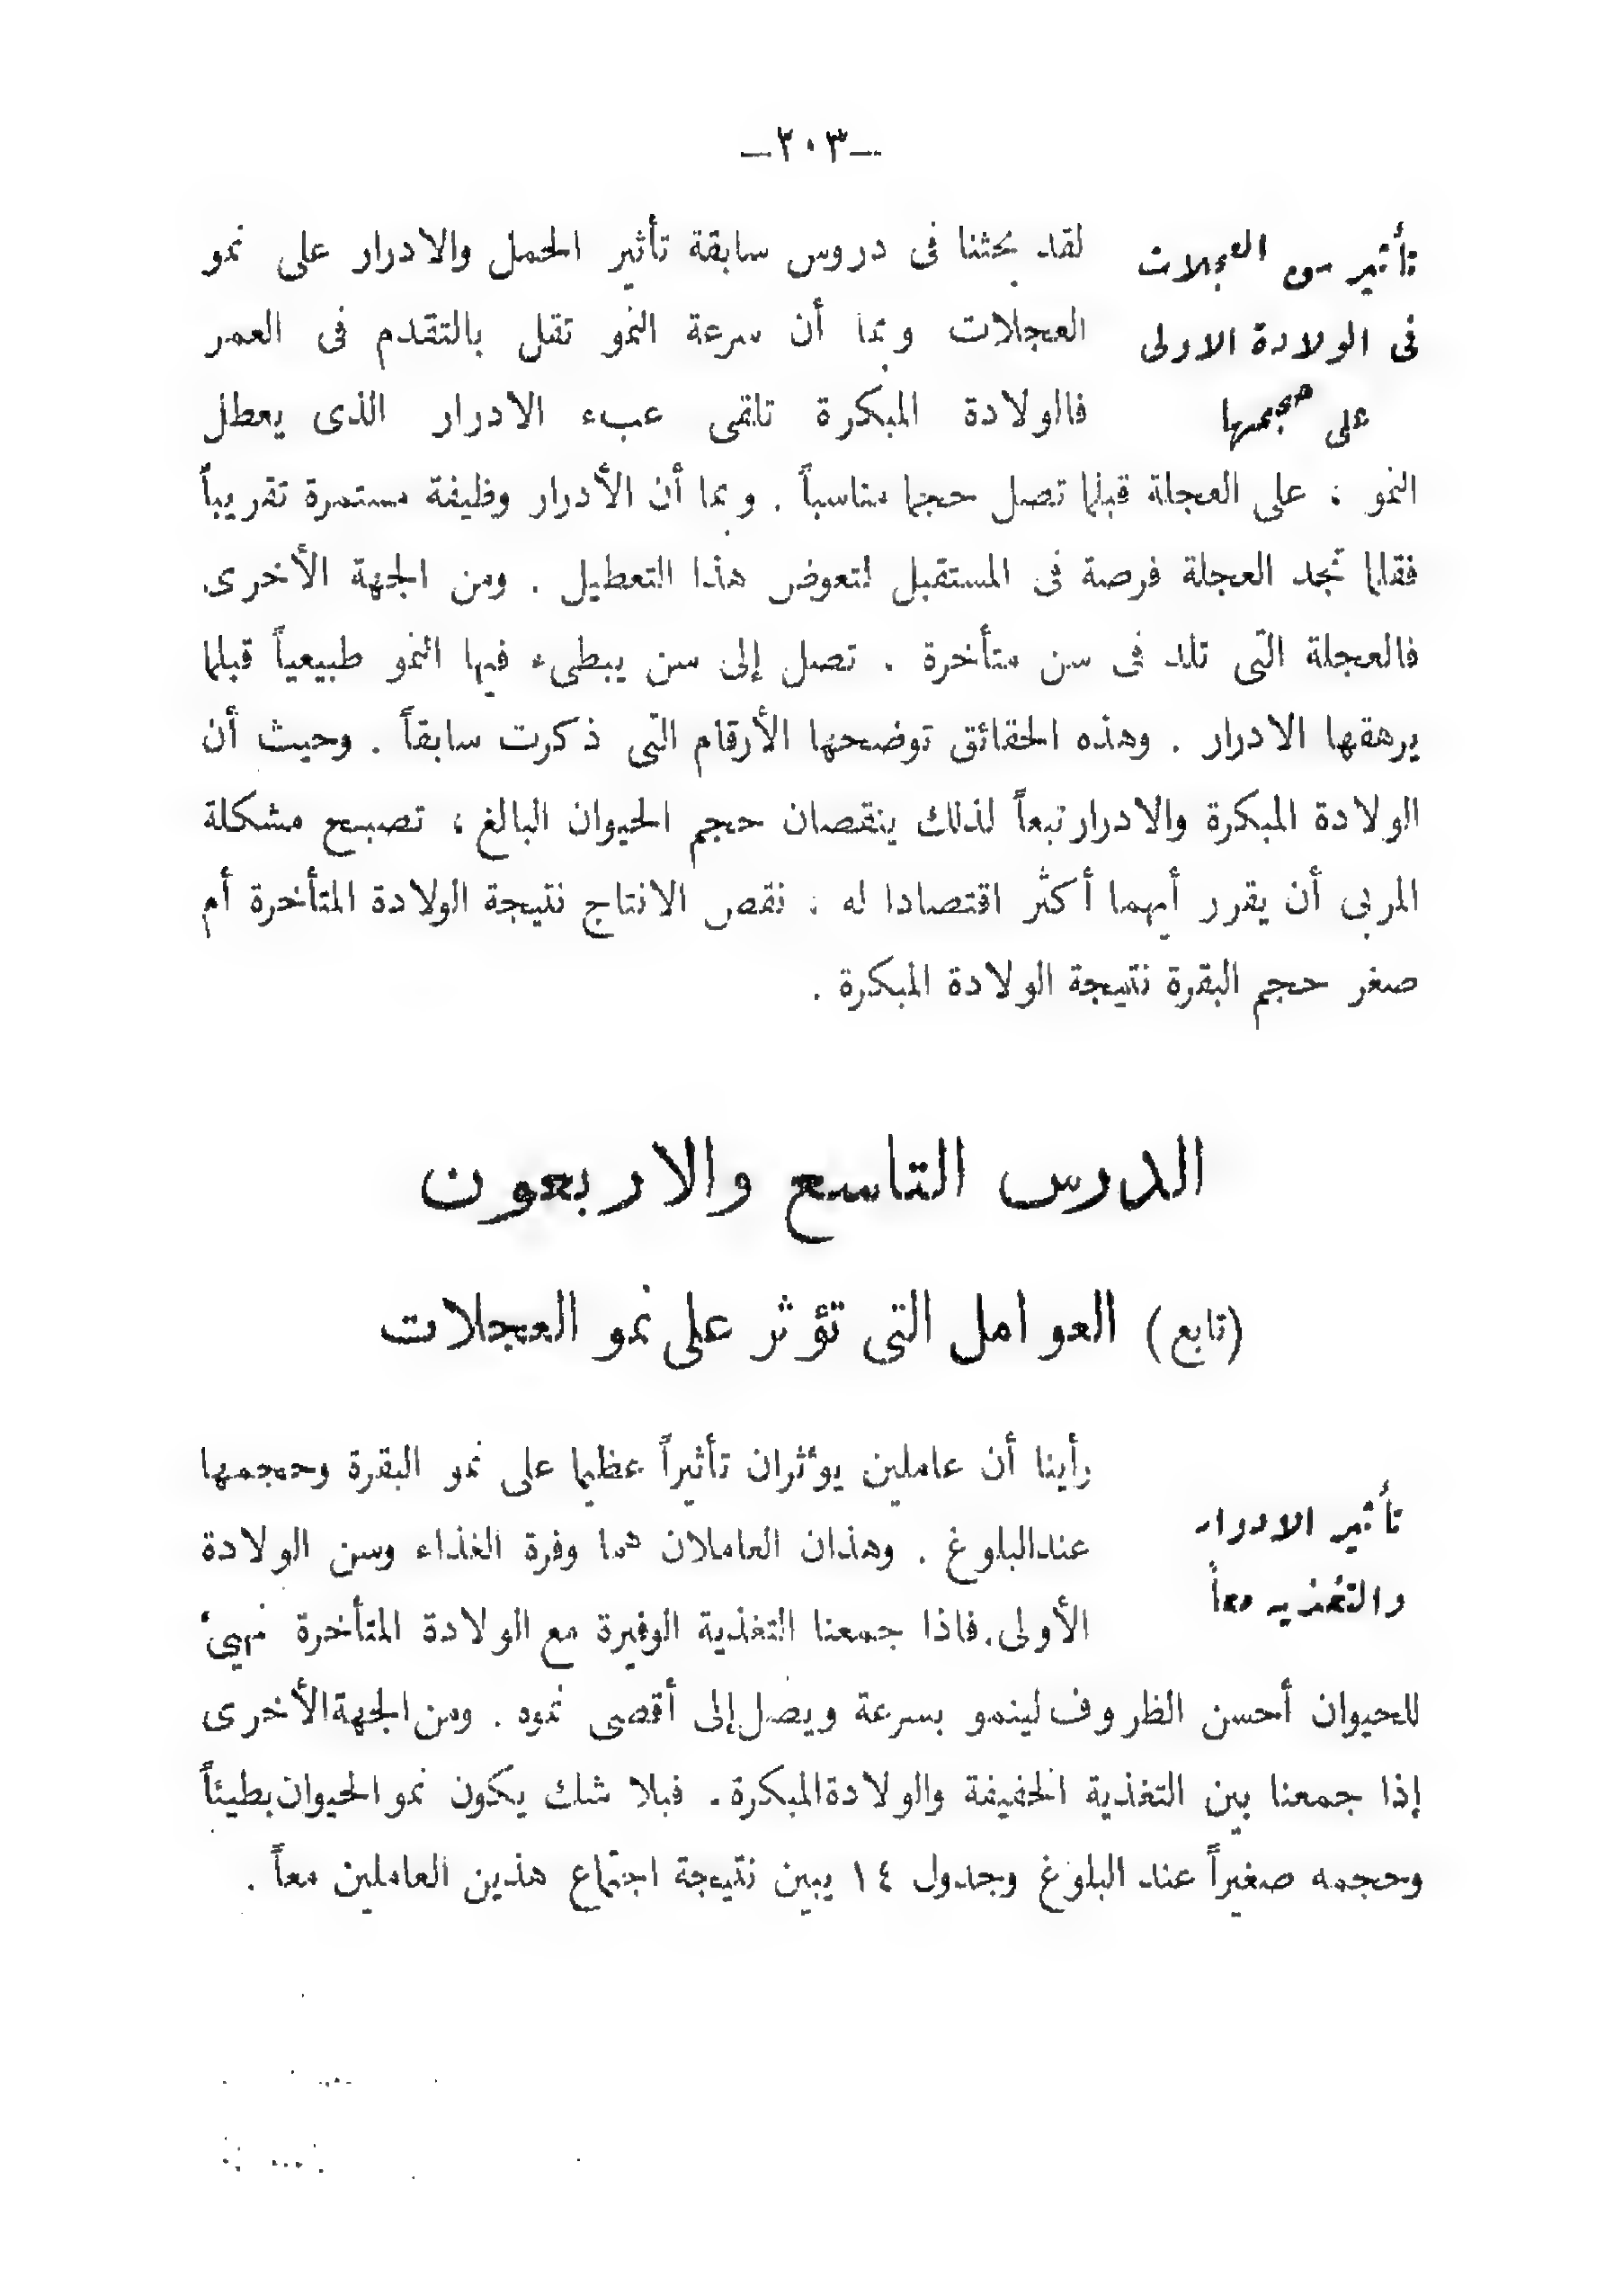 —٢٠٣—
تأثير سن العجلات
فى الولادة الاولى
على حجمها
لقد بحثنا فى دروس سابقة تأثير الحمل والادرار على نمو
العجلات وبما أن سرعة النمو تقل بالتقدم فى العمر
فالولادة المبكرة تلقى عبء الادرار الذى يعطل
النمو ، على العجلة قبلما تصل حجما مناسباً . وبما أن الأدرار وظيفة مستمرة تقريباً
فقلما تجد العجلة فرصة فى المستقبل لتعوض هذا التعطيل . ومن الجهة الأخرى
فالعجلة التى تلد فى سن متأخرة . تصل إلى سن يبطىء فيها النمو طبيعياً قبلما
يرهقها الادرار . وهذه الحقائق توضحها الأرقام التى ذكرت سابقاً . وحيث أن
الولادة المبكرة والادرار تبعاً لذلك ينقصان حجم الحيوان البالغ ، تصبح مشكلة
المربى أن يقرر أيهما أكثر اقتصادا له : نقص الانتاج نتيجة الولادة المتأخرة أم
صغر حجم البقرة نتيجة الولادة المبكرة .
الدرس التاسع والاربعون
(تابع) العوامل التى تؤثر على نمو العجلات
تأثير الادرار
والتغذيه معاً
رأينا أن عاملين يؤثران تأثيراً عظيما على نمو البقرة وحجمها
عند البلوغ . وهذان العاملان هما وفرة الغذاء وسن الولادة
الأولى . فاذا جمعنا التغذية الوفيرة مع الولادة المتأخرة نهيئ
للحيوان أحسن الظروف لينمو بسرعة ويصل إلى أقصى نموه . ومن الجهة الأخرى
إذا جمعنا بين التغذية الخفيفة والولادة المبكرة . فبلا شك يكون نمو الحيوان بطيئاً
وحجمه صغيراً عند البلوغ وجدول ١٤ يبين نتيجة اجتماع هذين العاملين معاً .